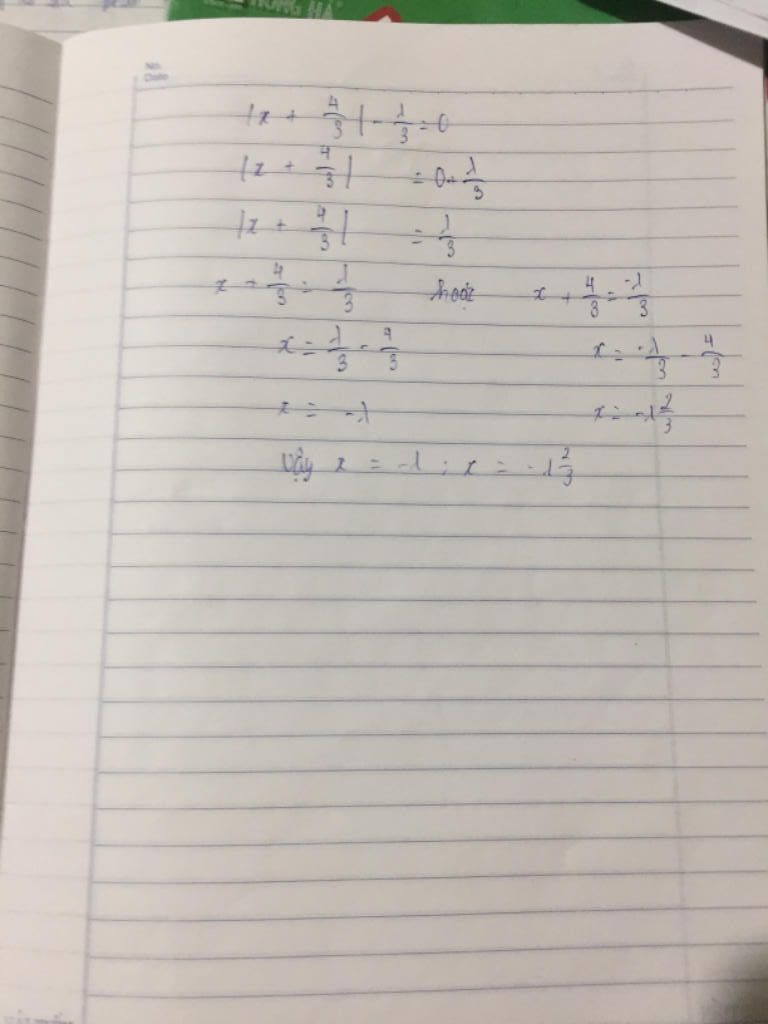 HỒNG HÀ
No.
Date
|x + 4/3| - 1/3 = 0
|x + 4/3| = 0 + 1/3
|x + 4/3| = 1/3
x + 4/3 = 1/3 hoặc x + 4/3 = -1/3
x = 1/3 - 4/3 x = -1/3 - 4/3
x = -1 x = -1 2/3
Vậy x = -1 ; x = -1 2/3